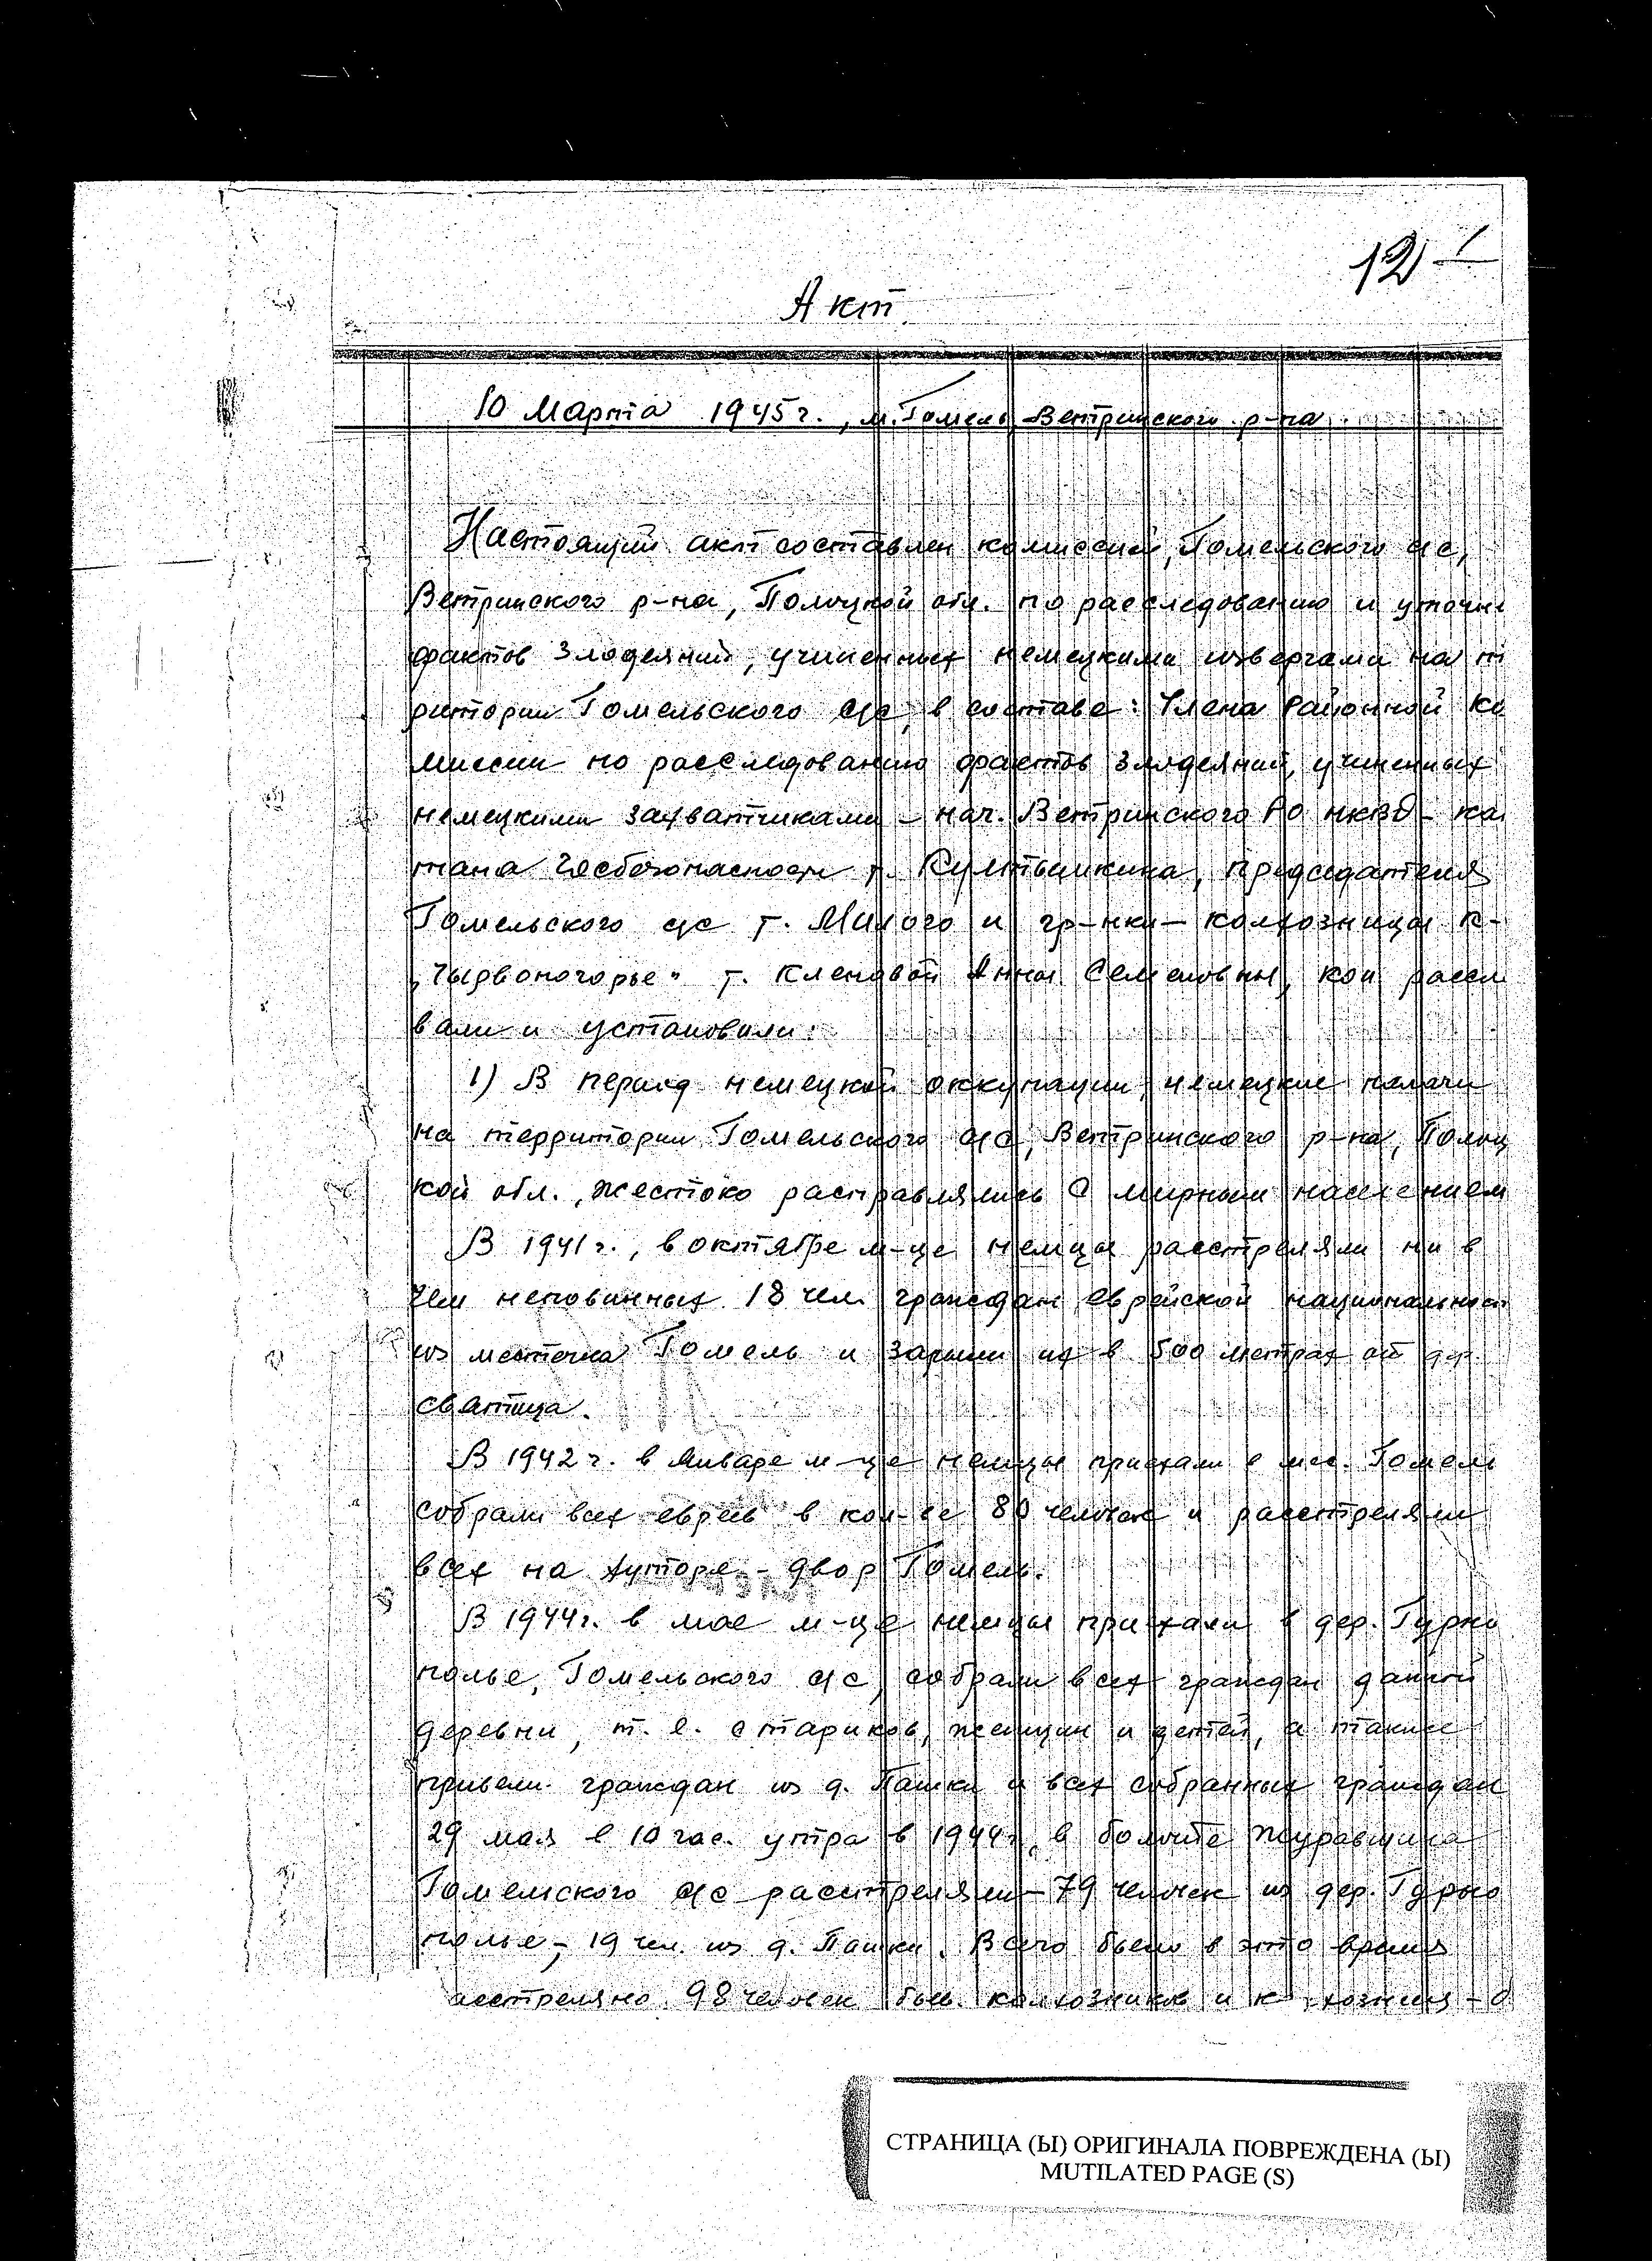 12
Акт
10 Марта 1945 г., м. Гомель, Ветринского р-на
Настоящий акт составлен комиссией, Гомельского с/с,
Ветринского р-на, Полоцкой обл. по расследованию и уточне
фактов злодеяний, учиненных немецкими извергами на т
ритории Гомельского с/с, в составе: Члена Районной Ко
миссии по расследованию фактов злодеяний, учиненных
немецкими захватчиками – нач. Ветринского РО НКВД – ка
тана Госбезопасности т. председателя
Гомельского с/с т. Милого и гр-нки – колхозницы к-
"Чырвоногорье" т. Кленовой Анны Семеновны, кои рассл
вали и установили:
1) В период немецкой оккупации, немецкие палачи
на территории Гомельского с/с, Ветринского р-на, Полоц
кой обл., жестоко расправлялись с мирным населением
В 1941 г., в октябре м-це немцы расстреляли ни в
чем неповинных 18 чел. граждан еврейской национальност
из местечка Гомель и зарыли их в 500 метрах от дер.
сватица.
В 1942 г. в январе м-це немцы приехали в мес. Гомель
собрали всех евреев в кол-ве 80 человек и расстреляли
всех на хуторе – двор Гомель.
В 1944 г. в мае м-це немцы приехали в дер. Гурно
полье, Гомельского с/с, собрали всех граждан данной
деревни, т. е. стариков, женщин и детей, а также
привели граждан из д. Пашки и всех собранных граждан
29 мая в 10 час. утра в 1944 г. в болоте Журавщина
Гомельского с/с расстреляли – 79 человек из дер. Гурно
полье, – 19 чел. из д. Пашки. Всего было в это время
асстреляно 98 человек быв. колхозников и к хозниц –
СТРАНИЦА (Ы) ОРИГИНАЛА ПОВРЕЖДЕНА (Ы)
MUTILATED PAGE (S)